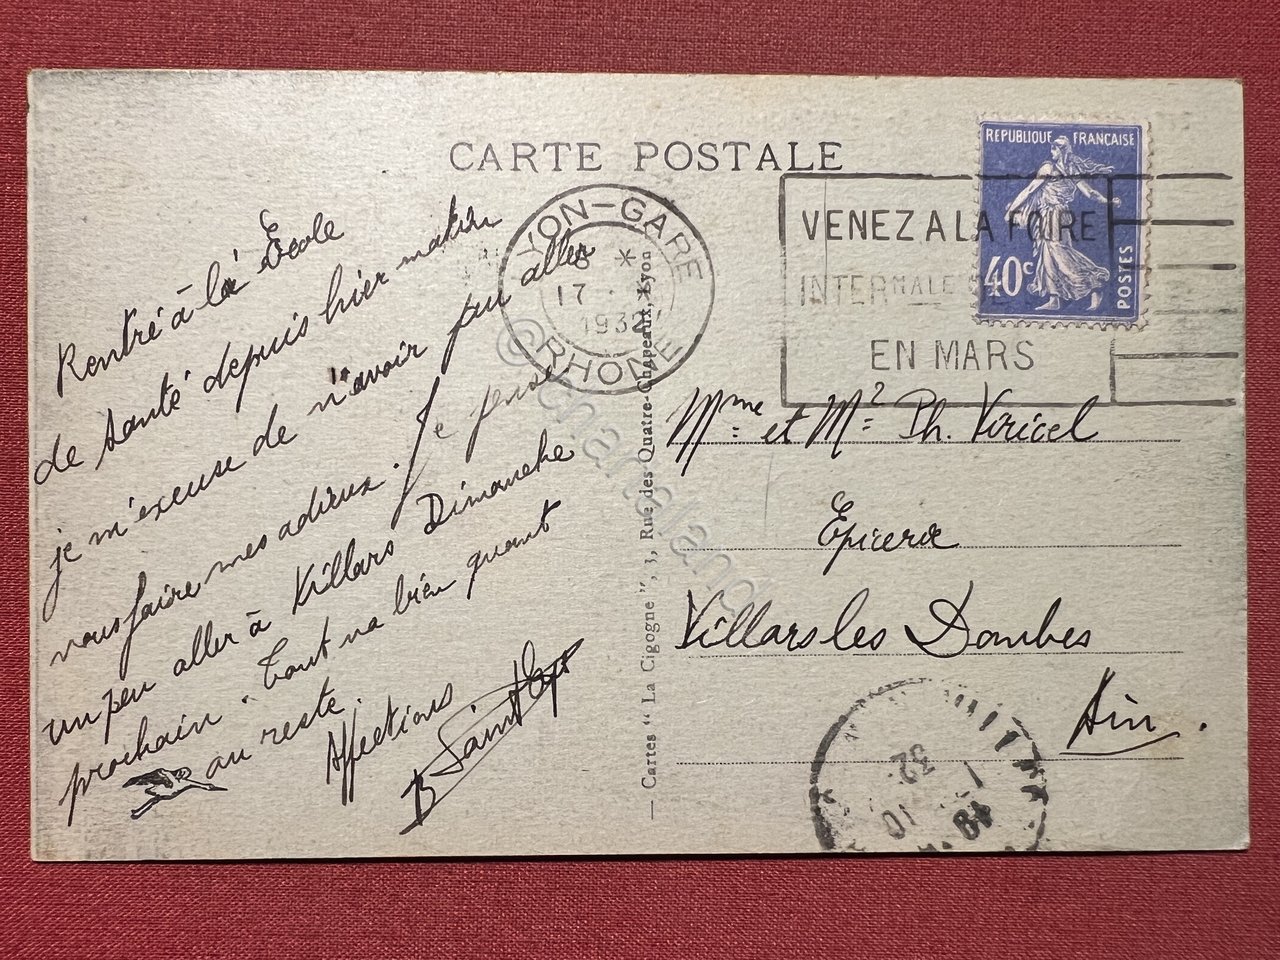 CARTE POSTALE
Rentré à la École
de santé depuis hier matin
je m'excuse de n'avoir pu aller
vous faire mes adieux. Je pense
un peu aller à Villars Dimanche
prochain - Tout va bien quant
au reste.
Affections
B
LYON-GARE
17
1932
RHONE
VENEZ A LA FOIRE
INTERNALE
EN MARS
REPUBLIQUE FRANÇAISE
40c
POSTES
Mme et Mr Ph. Viricel
Epicerie
Villars les Dombes
Ain.
— Cartes "La Cigogne", 33, Rue des Quatre-Chapeaux, Lyon
18
10
32
© chamaland